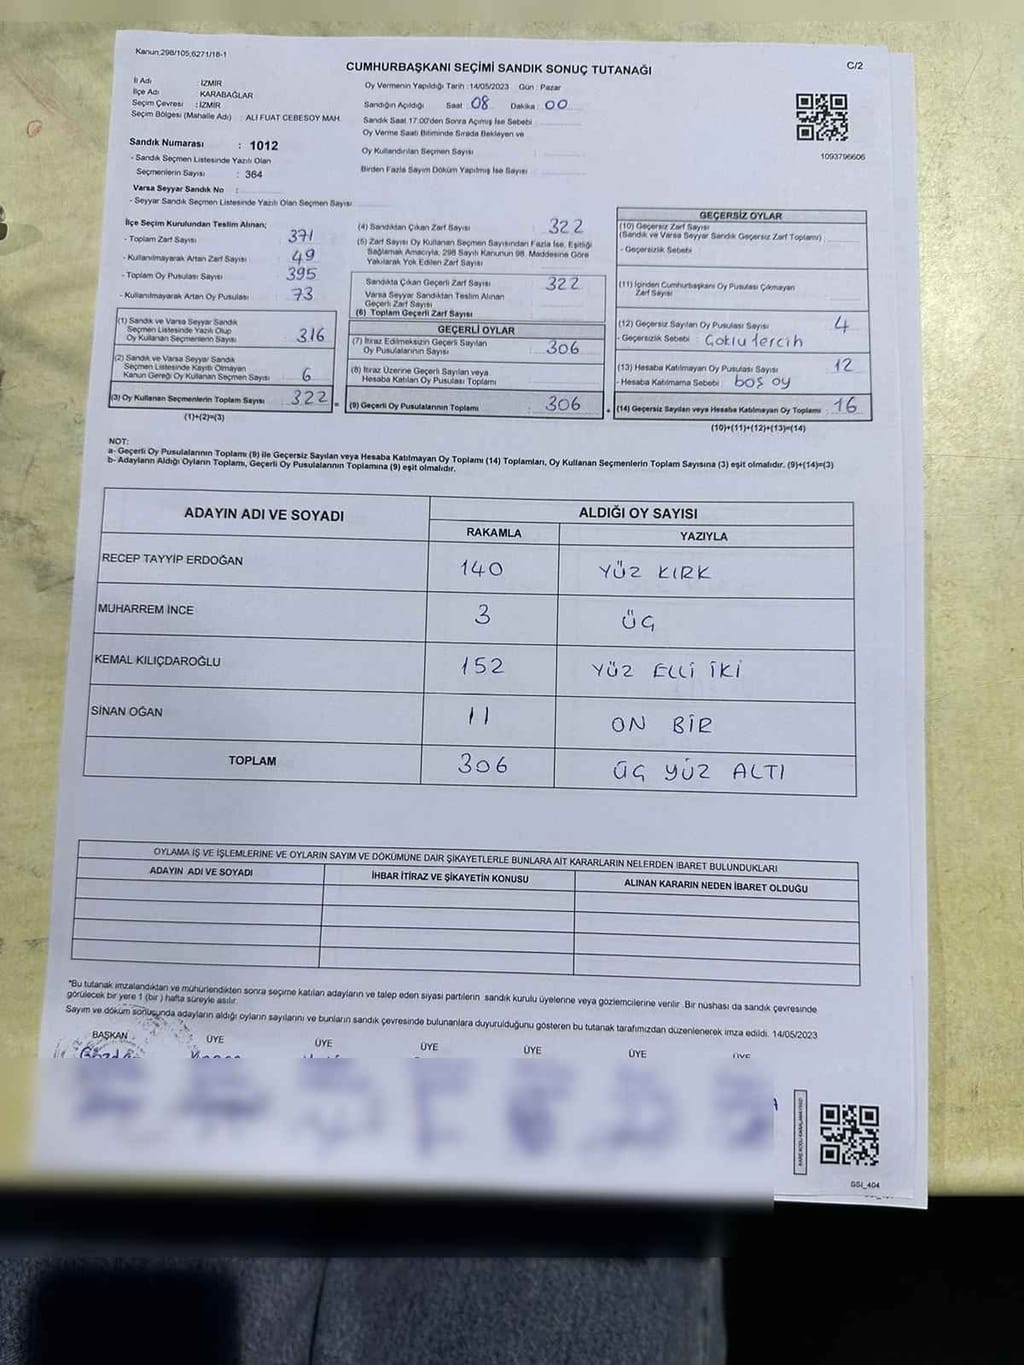 Kanun:298/105,6271/18-1
CUMHURBAŞKANI SEÇİMİ SANDIK SONUÇ TUTANAĞI
C/2
İl Adı : İZMİR
İlçe Adı : KARABAĞLAR
Seçim Çevresi : İZMİR
Seçim Bölgesi (Mahalle Adı) : ALİ FUAT CEBESOY MAH.
Sandık Numarası : 1012
- Sandık Seçmen Listesinde Yazılı Olan
Seçmenlerin Sayısı : 364
Varsa Seyyar Sandık No :
- Seyyar Sandık Seçmen Listesinde Yazılı Olan Seçmen Sayısı
Oy Vermenin Yapıldığı Tarih :14/05/2023 Gün : Pazar
Sandığın Açıldığı Saat : 08 Dakika : 00
Sandık Saat 17:00'den Sonra Açmış İse Sebebi
Oy Verme Saati Bitiminde Sırada Bekleyen ve
Oy Kullandırılan Seçmen Sayısı :
Birden Fazla Sayım Döküm Yapılmış İse Sayısı :
1093796606
İlçe Seçim Kurulundan Teslim Alınan;
- Toplam Zarf Sayısı 371
- Kullanılmayarak Artan Zarf Sayısı 49
- Toplam Oy Pusulası Sayısı 395
- Kullanılmayarak Artan Oy Pusulası 73
(1) Sandık ve Varsa Seyyar Sandık
Seçmen Listesinde Yazılı Olup
Oy Kullanan Seçmenlerin Sayısı 316
(2) Sandık ve Varsa Seyyar Sandık
Seçmen Listesinde Kayıtlı Olmayan
Kanun Gereği Oy Kullanan Seçmen Sayısı 6
(3) Oy Kullanan Seçmenlerin Toplam Sayısı 322 =
(1)+(2)=(3)
(4) Sandıktan Çıkan Zarf Sayısı 322
(5) Zarf Sayısı Oy Kullanan Seçmen Sayısından Fazla İse, Eşitliği
Sağlamak Amacıyla, 298 Sayılı Kanunun 98. Maddesine Göre
Yakılarak Yok Edilen Zarf Sayısı
Sandıkta Çıkan Geçerli Zarf Sayısı 322
Varsa Seyyar Sandıktan Teslim Alınan
Geçerli Zarf Sayısı
(6) Toplam Geçerli Zarf Sayısı
GEÇERLİ OYLAR
(7) İtiraz Edilmeksizin Geçerli Sayılan
Oy Pusulalarının Sayısı 306
(8) İtiraz Üzerine Geçerli Sayılan veya
Hesaba Katılan Oy Pusulası Toplamı
(9) Geçerli Oy Pusulalarının Toplamı 306 +
GEÇERSİZ OYLAR
(10) Geçersiz Zarf Sayısı
(Sandık ve Varsa Seyyar Sandık Geçersiz Zarf Toplamı)
- Geçersizlik Sebebi
(11) İçinden Cumhurbaşkanı Oy Pusulası Çıkmayan
Zarf Sayısı
(12) Geçersiz Sayılan Oy Pusulası Sayısı 4
- Geçersizlik Sebebi : Çoklu tercih
(13) Hesaba Katılmayan Oy Pusulası Sayısı 12
- Hesaba Katılmama Sebebi : boş oy
(14) Geçersiz Sayılan veya Hesaba Katılmayan Oy Toplamı 16
(10)+(11)+(12)+(13)=(14)
NOT:
a- Geçerli Oy Pusulalarının Toplamı (9) ile Geçersiz Sayılan veya Hesaba Katılmayan Oy Toplamı (14) Toplamları, Oy Kullanan Seçmenlerin Toplam Sayısına (3) eşit olmalıdır. (9)+(14)=(3)
b- Adayların Aldığı Oyların Toplamı, Geçerli Oy Pusulalarının Toplamına (9) eşit olmalıdır.
ADAYIN ADI VE SOYADI
ALDIĞI OY SAYISI
RAKAMLA YAZIYLA
RECEP TAYYİP ERDOĞAN 140 YÜZ KIRK
MUHARREM İNCE 3 ÜÇ
KEMAL KILIÇDAROĞLU 152 YÜZ ELLİ İKİ
SİNAN OĞAN 11 ON BİR
TOPLAM 306 ÜÇ YÜZ ALTI
OYLAMA İŞ VE İŞLEMLERİNE VE OYLARIN SAYIM VE DÖKÜMÜNE DAİR ŞİKAYETLERLE BUNLARA AİT KARARLARIN NELERDEN İBARET BULUNDUKLARI
ADAYIN ADI VE SOYADI İHBAR İTİRAZ VE ŞİKAYETİN KONUSU ALINAN KARARIN NEDEN İBARET OLDUĞU
*Bu tutanak imzalandıktan ve mühürlendikten sonra seçime katılan adayların ve talep eden siyasi partilerin sandık kurulu üyelerine veya gözlemcilerine verilir. Bir nüshası da sandık çevresinde
görülecek bir yere 1 (bir) hafta süreyle asılır.
Sayım ve döküm sonuçunda adayların aldığı oyların sayılarını ve bunların sandık çevresinde bulunanlara duyurulduğunu gösteren bu tutanak tarafımızdan düzenlenerek imza edildi. 14/05/2023
BAŞKAN ÜYE ÜYE ÜYE ÜYE ÜYE ÜYE
GSI_404